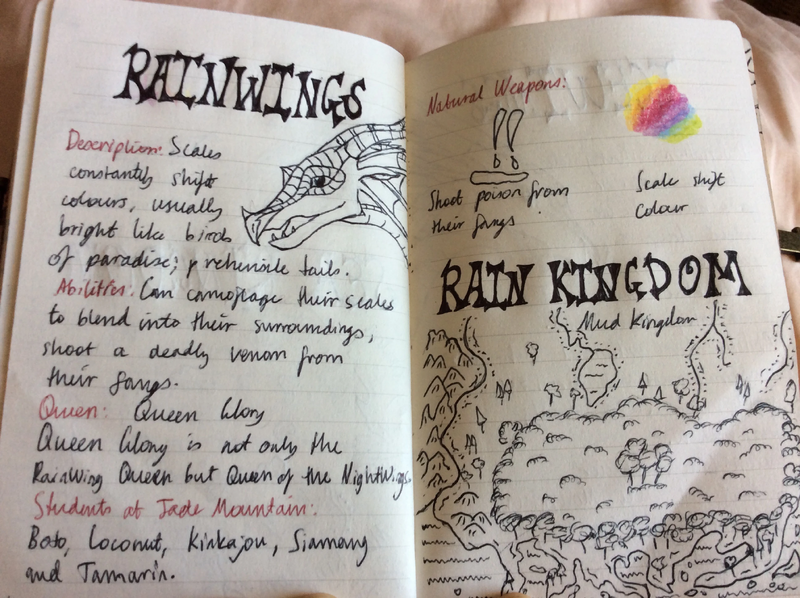 RAINWINGS
Description: Scales
constantly shift
colours, usually
bright like birds
of paradise; prehensile tails.
Abilities: Can camoflage their scales
to blend into their surroundings,
shoot a deadly venom from
their fangs.
Queen: Queen Glory
Queen Glory is not only the
RainWing Queen but Queen of the NightWings.
Students at Jade Mountain:
Boto, Coconut, Kinkajou, Siamang
and Tamarin.
Natural Weapons:
Shoot poison from
their fangs
Scale shift
colour
RAIN KINGDOM
Mud Kingdom